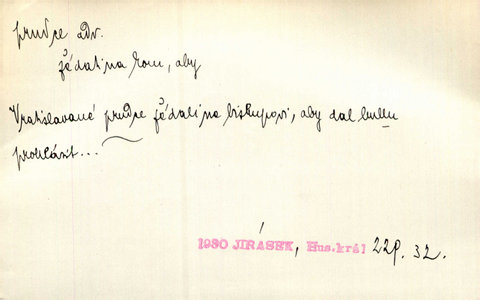 prudce adv.
žádati na kom, aby
Vratislavané prudce žádali na biskupovi, aby dal bullu
prohlásit...
1930 JIRÁSEK, Hus.král 22p. 32.